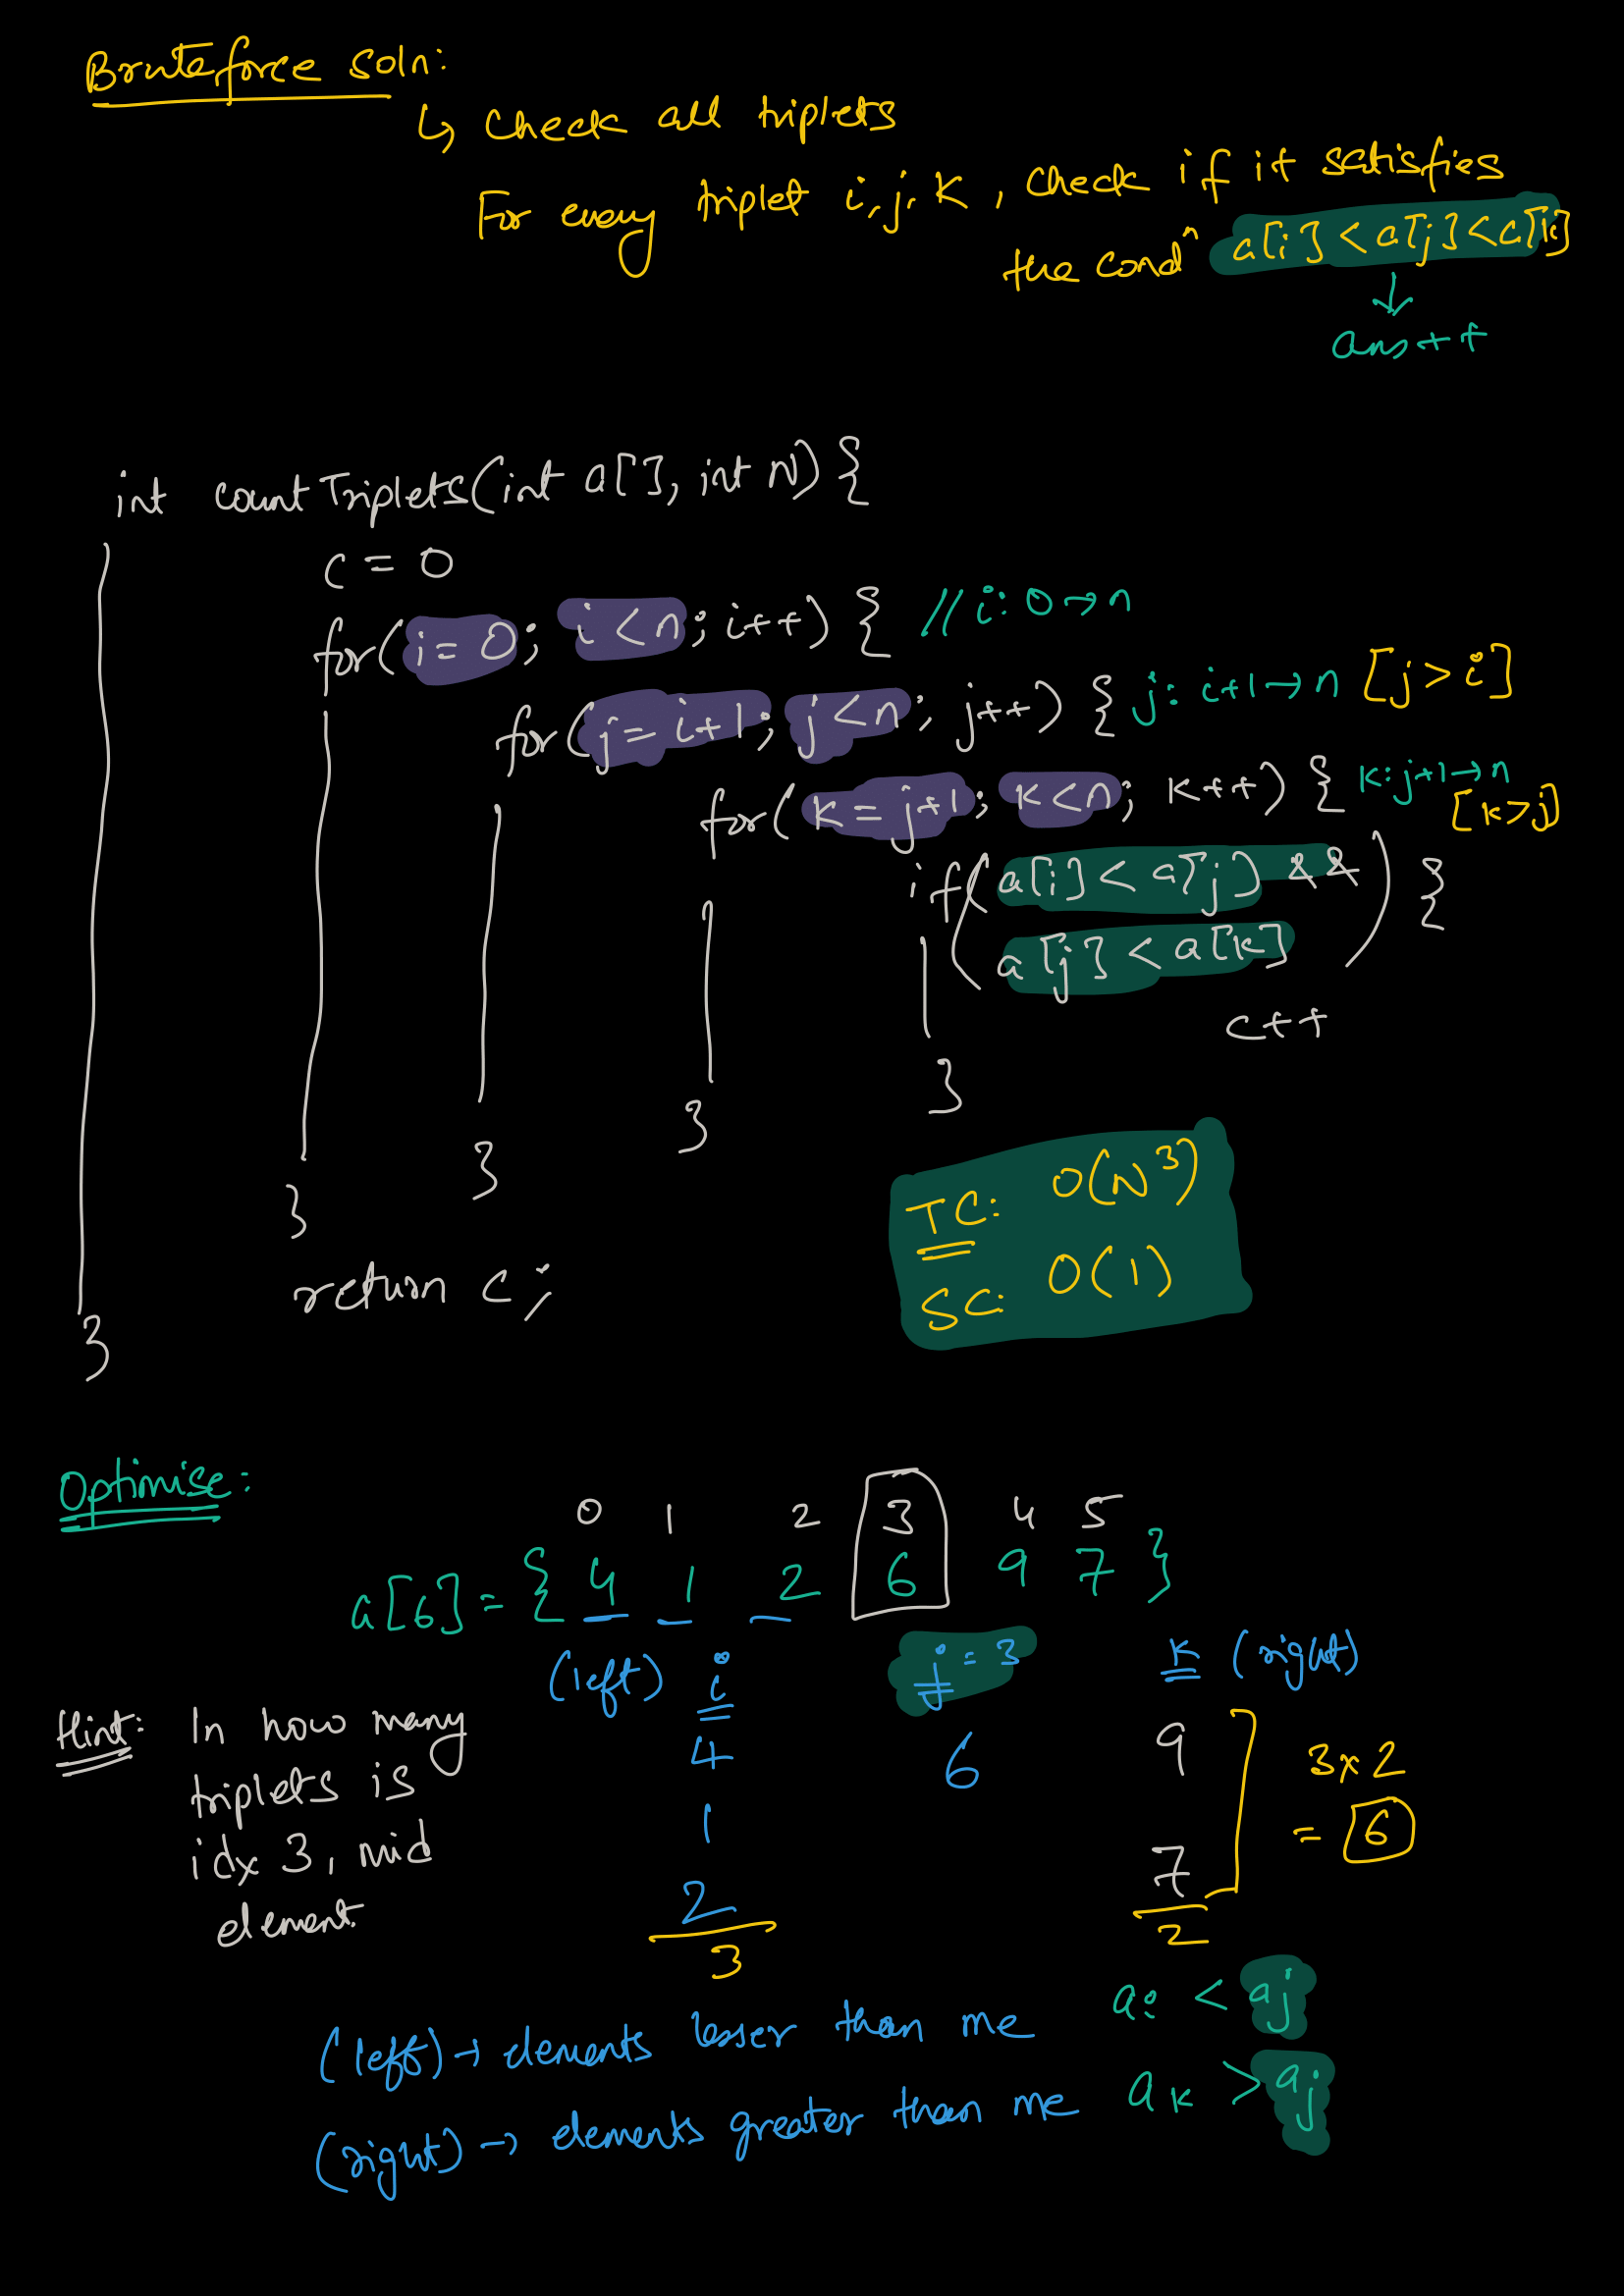 Bruteforce soln:
↳ check all triplets
For every triplet i, j, k, check if it satisfies
the condⁿ a[i] < a[j] < a[k]
↓
ans++
int countTriplets(int a[], int N) {
c = 0
for(i= 0; i<n; i++) { // i: 0→n
for(j= i+1; j<n; j++) { j: i+1→n [j > i]
for(k= j+1; k<n; k++) { k: j+1→n
[k>j]
if(a[i] < a[j] &&
a[j] < a[k]) {
c++
}
}
}
}
TC: O(N³)
SC: O(1)
return c;
}
Optimise:
0 1 2 3 4 5
a[6] = { 4 1 2 6 9 7 }
(left) i j = 3 k (right)
Hint: In how many
triplets is
idx 3, mid
element.
4 6 9
1
7
2
3 2
3x2
= 6
(left) → elements lesser than me ai < aj
(right) → elements greater than me ak > aj